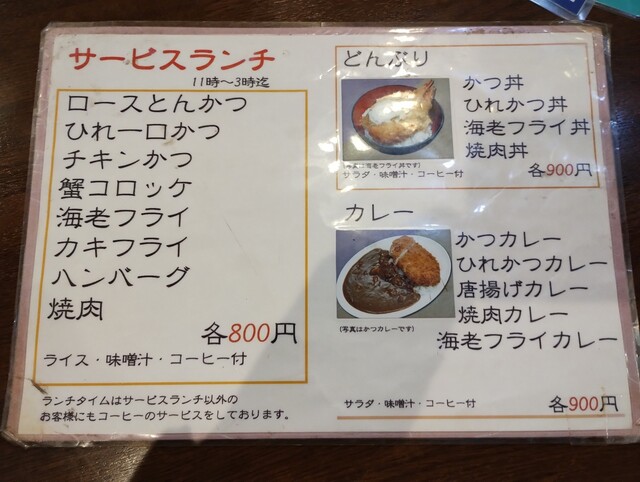 サービスランチ
11時～3時迄
ロースとんかつ
ひれ一口かつ
チキンかつ
蟹コロッケ
海老フライ
カキフライ
ハンバーグ
焼肉
各800円
ライス・味噌汁・コーヒー付
ランチタイムはサービスランチ以外の
お客様にもコーヒーのサービスをしております。
どんぶり
かつ丼
ひれかつ丼
海老フライ丼
焼肉丼
(写真は海老フライ丼です)
サラダ・味噌汁・コーヒー付
各900円
カレー
かつカレー
ひれかつカレー
唐揚げカレー
焼肉カレー
海老フライカレー
(写真はかつカレーです)
サラダ・味噌汁・コーヒー付
各900円